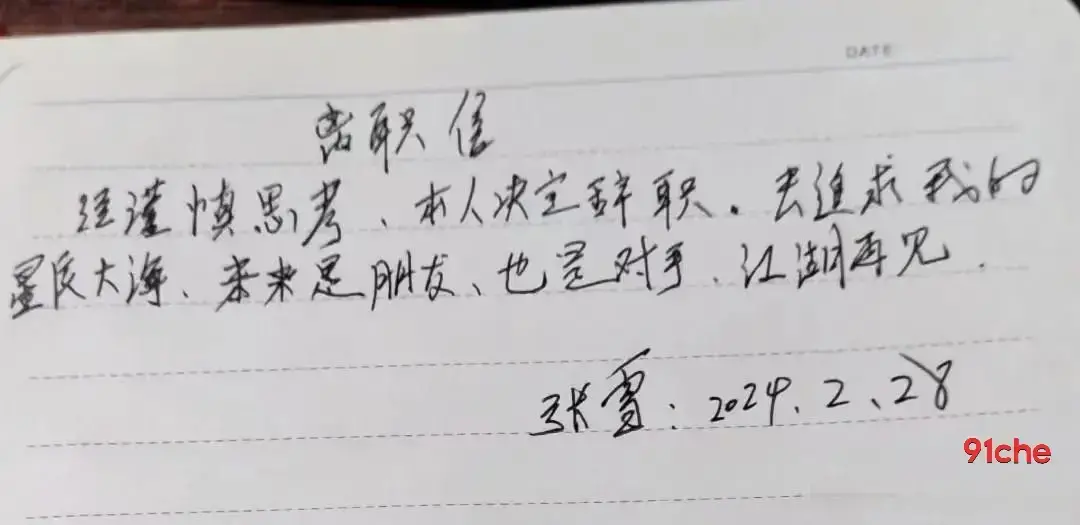 DATE
离职信
经谨慎思考、本人决定辞职。去追求我的
星辰大海、未来是朋友、也是对手、江湖再见.
张雪：2024.2、28
91che